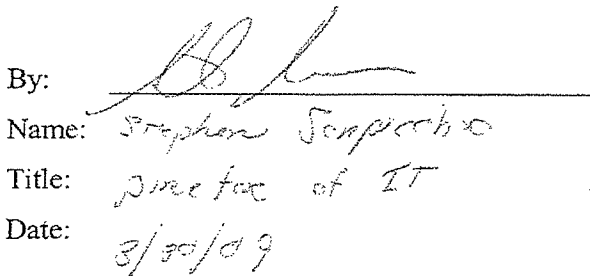 By:
Name: Stephen
Title: Director of IT
Date: 3/30/09